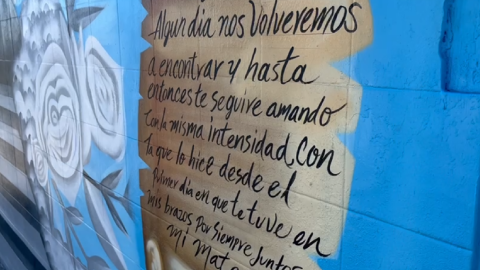 Algun dia nos Volveremos
a encontrar y hasta
entonces te seguire amando
Con la misma intensidad, con
la que lo hice desde el
primer dia en que te tuve en
mis brazos Por Siempre Juntos
Mi Mat